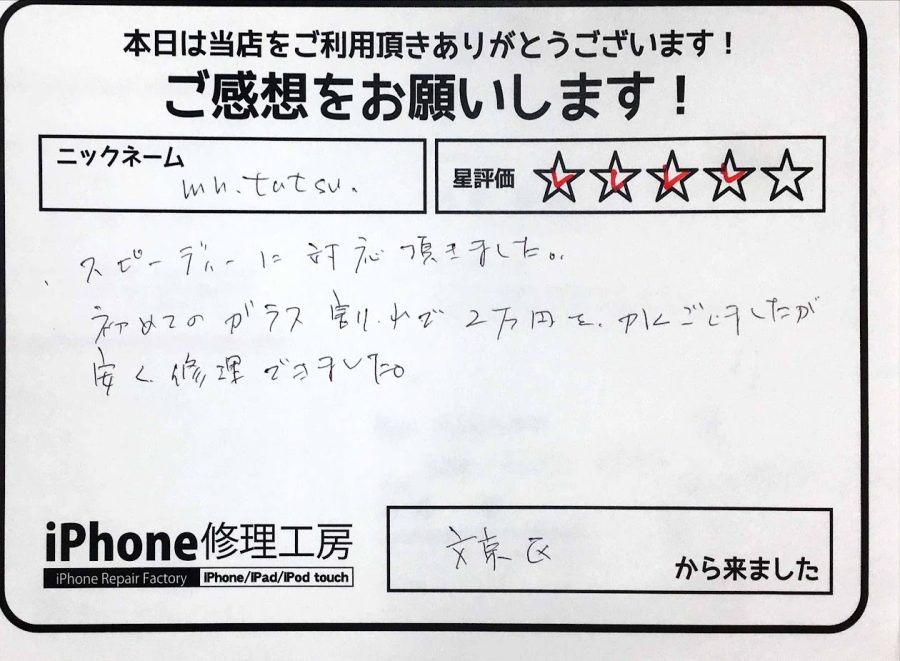 本日は当店をご利用頂きありがとうございます！
ご感想をお願いします！
ニックネーム
mh.tatsu.
星評価
スピーディーに対応頂きました。
初めてのガラス割れで2万円を、かくごしましたが
安く修理できました。
iPhone修理工房
iPhone Repair Factory iPhone/iPad/iPod touch
文京区
から来ました